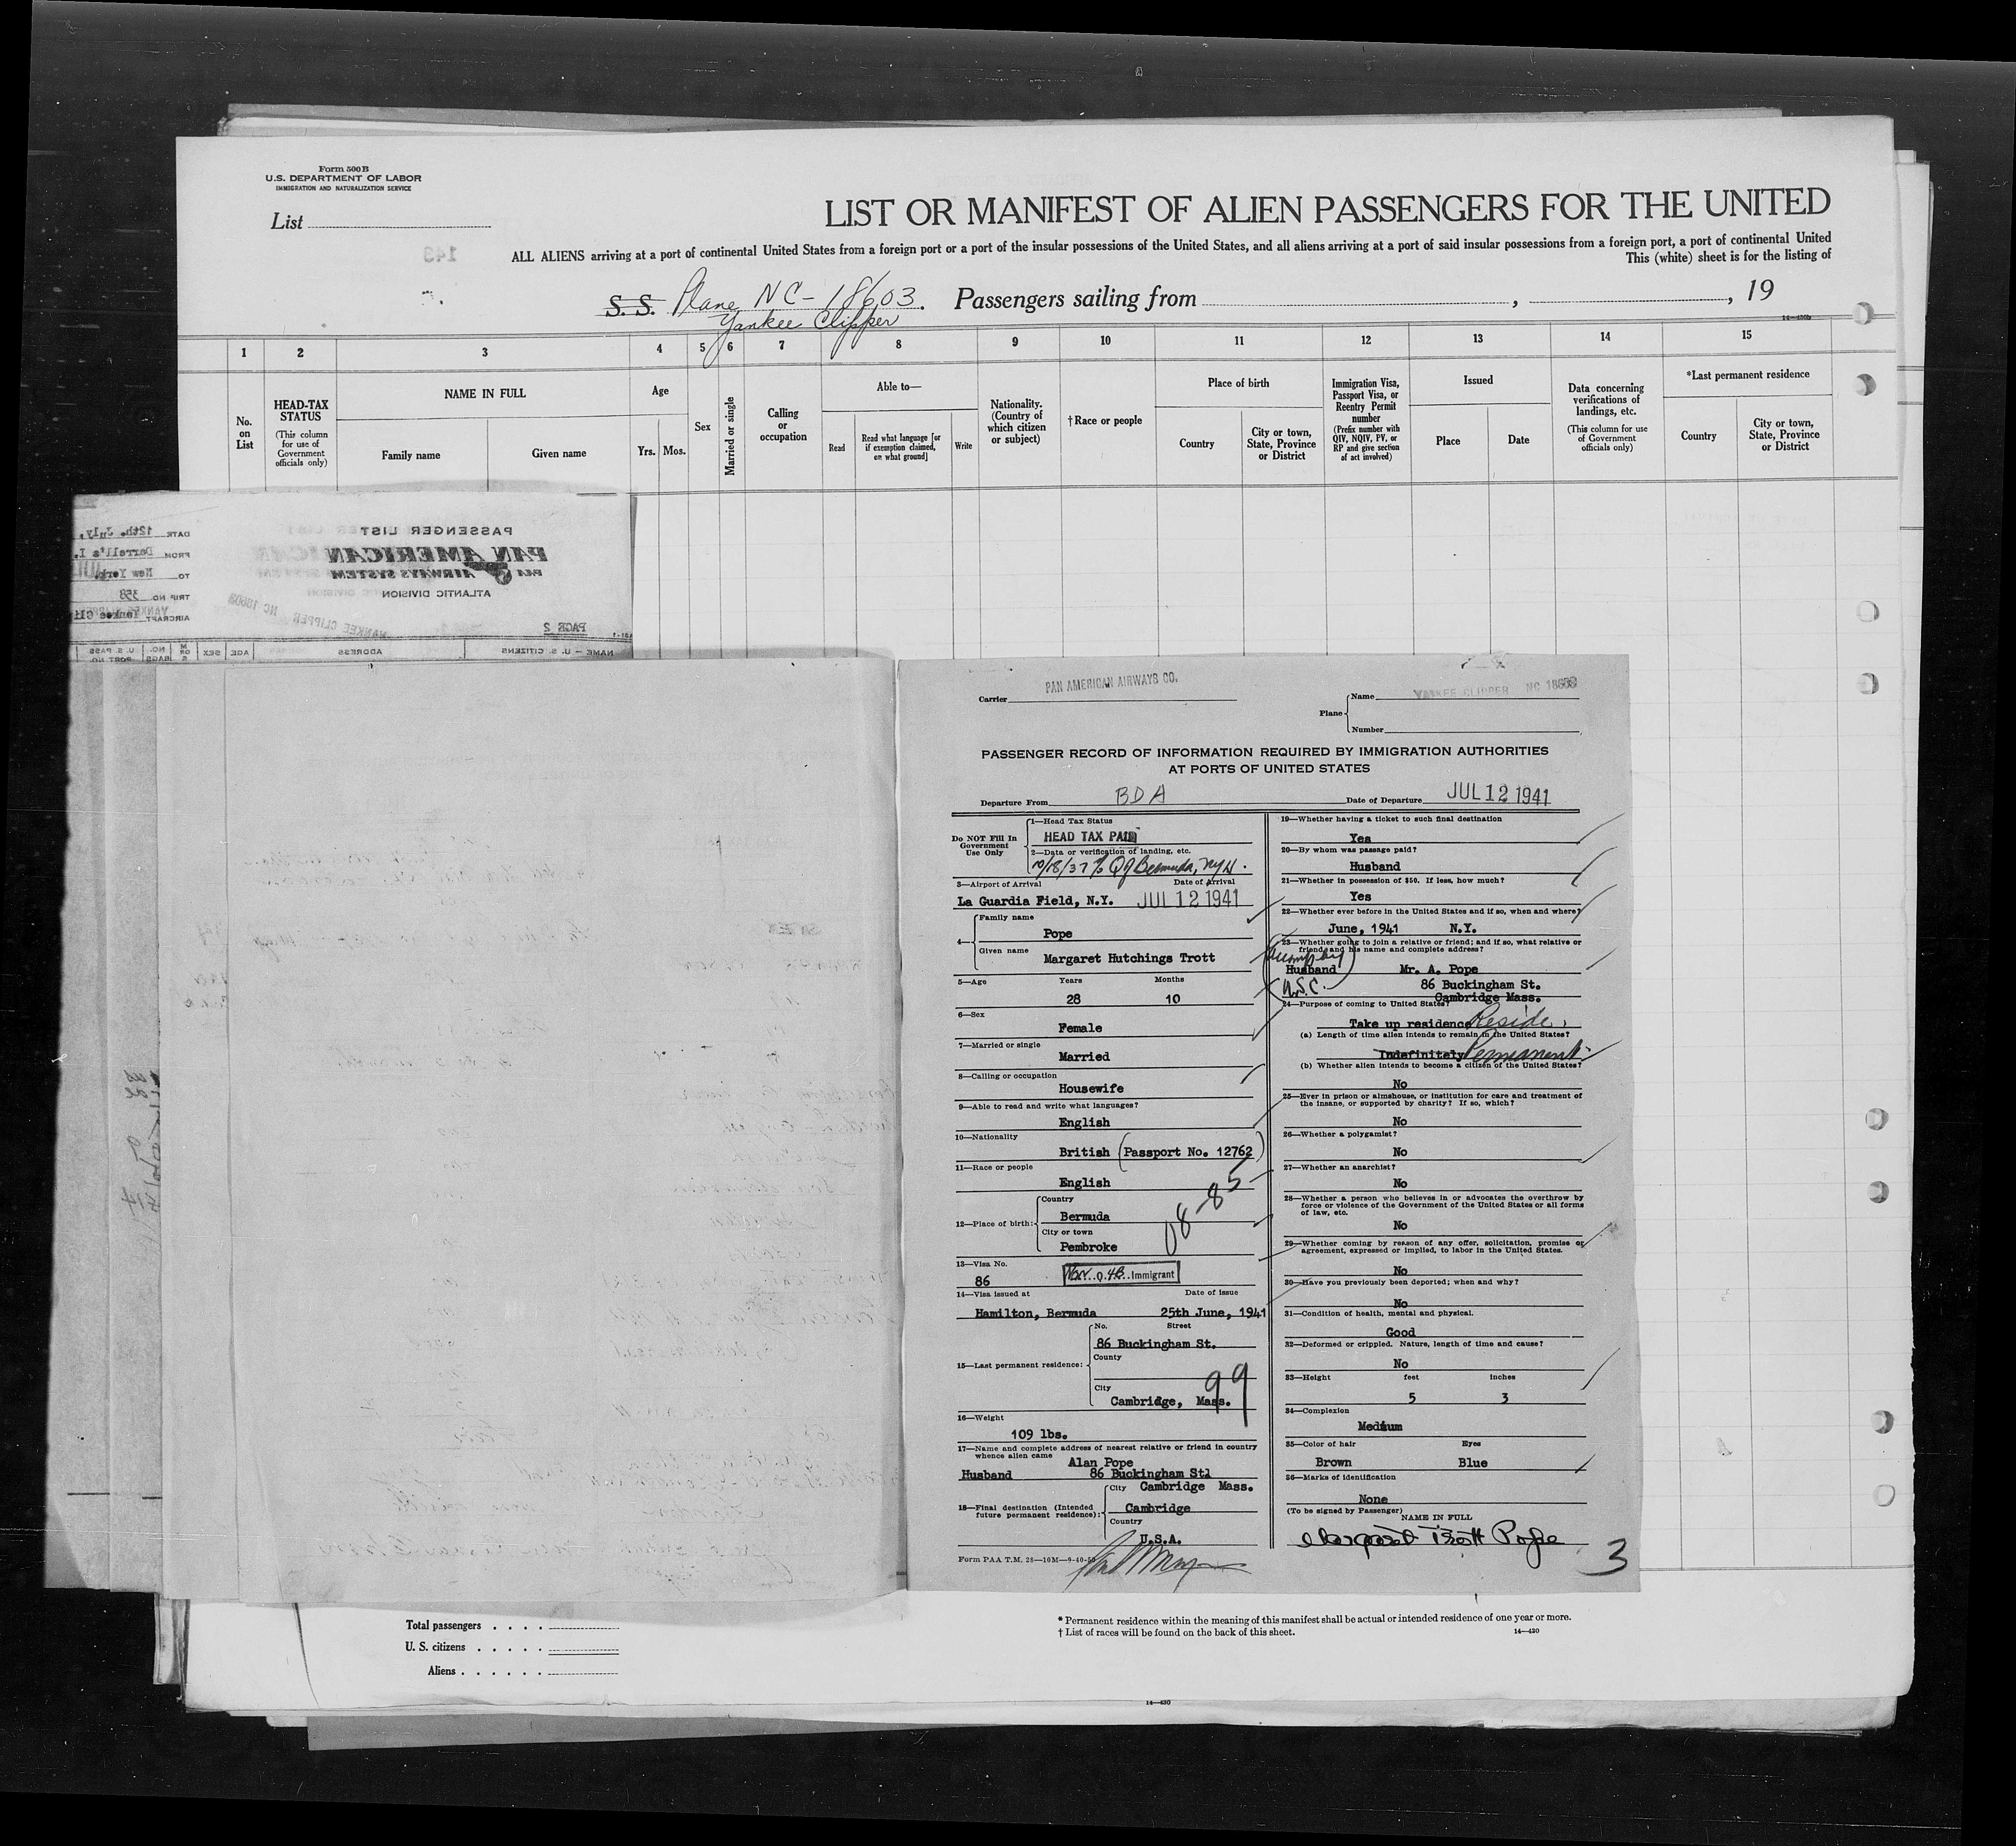 Form 500 B
U.S. DEPARTMENT OF LABOR
IMMIGRATION AND NATURALIZATION SERVICE
List
143
LIST OR MANIFEST OF ALIEN PASSENGERS FOR THE UNITED
ALL ALIENS arriving at a port of continental United States from a foreign port or a port of the insular possessions of the United States, and all aliens arriving at a port of said insular possessions from a foreign port, a port of continental United
This (white) sheet is for the listing of
S. S. Plane NC-18603. Passengers sailing from , , 19
Yankee Clipper
1 2 3 4 5 6 7 8 9 10 11 12 13 14 15
No. on List
HEAD-TAX STATUS
(This column for use of Government officials only)
NAME IN FULL
Family name
Given name
Age
Yrs. Mos.
Sex
Married or single
Calling or occupation
Able to—
Read
Read what language [or if exemption claimed, on what ground]
Write
Nationality. (Country of which citizen or subject)
† Race or people
Place of birth
Country
City or town, State, Province or District
Immigration Visa, Passport Visa, or Reentry Permit number
(Prefix number with QIV, NQIV, PV, or RP and give section of act involved)
Issued
Place
Date
Data concerning verifications of landings, etc.
(This column for use of Government officials only)
*Last permanent residence
Country
City or town, State, Province or District
PASSENGER LIST
PAN AMERICAN
PAA AIRWAYS SYSTEM
ATLANTIC DIVISION
YANKEE CLIPPER NC 18603
PAGE 2
DATE 12th. July,
FROM Darrell's I.
TO New York.
TRIP NO 358
AIRCRAFT Yankee Cli
NAME — U. S. CITIZENS
ADDRESS
AGE
SEX
M OR S
NO. BAGS
U. S. PASS PORT NO.
Carrier PAN AMERICAN AIRWAYS CO.
Plane
Name YANKEE CLIPPER NC 18603
Number
PASSENGER RECORD OF INFORMATION REQUIRED BY IMMIGRATION AUTHORITIES
AT PORTS OF UNITED STATES
Departure From BDA Date of Departure JUL 12 1941
Do NOT Fill In
Government
Use Only
1—Head Tax Status
HEAD TAX PAID
2—Data or verification of landing, etc.
10/18/37 Q of Bermuda, NY
3—Airport of Arrival Date of Arrival
La Guardia Field, N.Y. JUL 12 1941
4—
Family name
Pope
Given name
Margaret Hutchings Trott
5—Age Years Months
28 10
6—Sex
Female
7—Married or single
Married
8—Calling or occupation
Housewife
9—Able to read and write what languages?
English
10—Nationality
British (Passport No. 12762)
11—Race or people
English
12—Place of birth:
Country
Bermuda
City or town
Pembroke
08-85
13—Visa No.
86 Non. Q. 4B. Immigrant
14—Visa issued at Date of issue
Hamilton, Bermuda 25th June, 1941
15—Last permanent residence:
No. Street
86 Buckingham St.
County
City
Cambridge, Mass.
99
16—Weight
109 lbs.
17—Name and complete address of nearest relative or friend in country
whence alien came
Alan Pope
Husband 86 Buckingham Stl
Cambridge Mass.
18—Final destination (Intended
future permanent residence):
City
Cambridge
Country
U.S.A.
Form PAA T.M. 28—10M—9-40-50
19—Whether having a ticket to such final destination
Yes
20—By whom was passage paid?
Husband
21—Whether in possession of $50. If less, how much?
Yes
22—Whether ever before in the United States and if so, when and where?
June, 1941 N.Y.
23—Whether going to join a relative or friend; and if so, what relative or
friend and his name and complete address?
Husband Mr. A. Pope
U.S.C. 86 Buckingham St.
Cambridge Mass.
24—Purpose of coming to United States?
Take up residence Reside
(a) Length of time alien intends to remain in the United States?
Indefinitely Permanent
(b) Whether alien intends to become a citizen of the United States?
No
25—Ever in prison or almshouse, or institution for care and treatment of
the insane, or supported by charity? If so, which?
No
26—Whether a polygamist?
No
27—Whether an anarchist?
No
28—Whether a person who believes in or advocates the overthrow by
force or violence of the Government of the United States or all forms
of law, etc.
No
29—Whether coming by reason of any offer, solicitation, promise or
agreement, expressed or implied, to labor in the United States.
No
30—Have you previously been deported; when and why?
No
31—Condition of health, mental and physical.
Good
32—Deformed or crippled. Nature, length of time and cause?
No
33—Height feet inches
5 3
34—Complexion
Medium
35—Color of hair Eyes
Brown Blue
36—Marks of identification
None
(To be signed by Passenger)
NAME IN FULL
Margaret Trott Pope
3
Total passengers
U. S. citizens
Aliens
* Permanent residence within the meaning of this manifest shall be actual or intended residence of one year or more.
† List of races will be found on the back of this sheet.
14—430